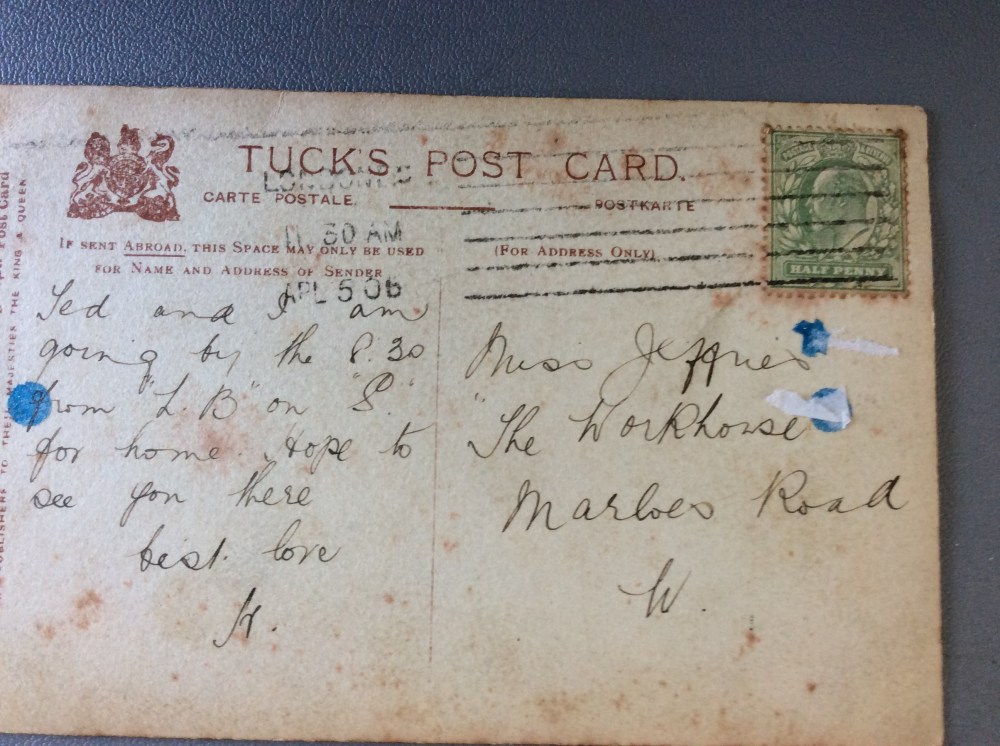 TUCK'S POST CARD.
CARTE POSTALE.
POSTKARTE
LONDON
11 30 AM
APL 5 06
IF SENT ABROAD, THIS SPACE MAY ONLY BE USED
FOR NAME AND ADDRESS OF SENDER
(FOR ADDRESS ONLY)
HALF PENNY
Ted and I am
going by the 8.30
from "L.B" on "S."
for home. Hope to
see you there
best love
H.
Miss Jeffries
"The Workhouse
Marloes Road
W.
PUBLISHERS TO THEIR MAJESTIES THE KING & QUEEN.
Post Card